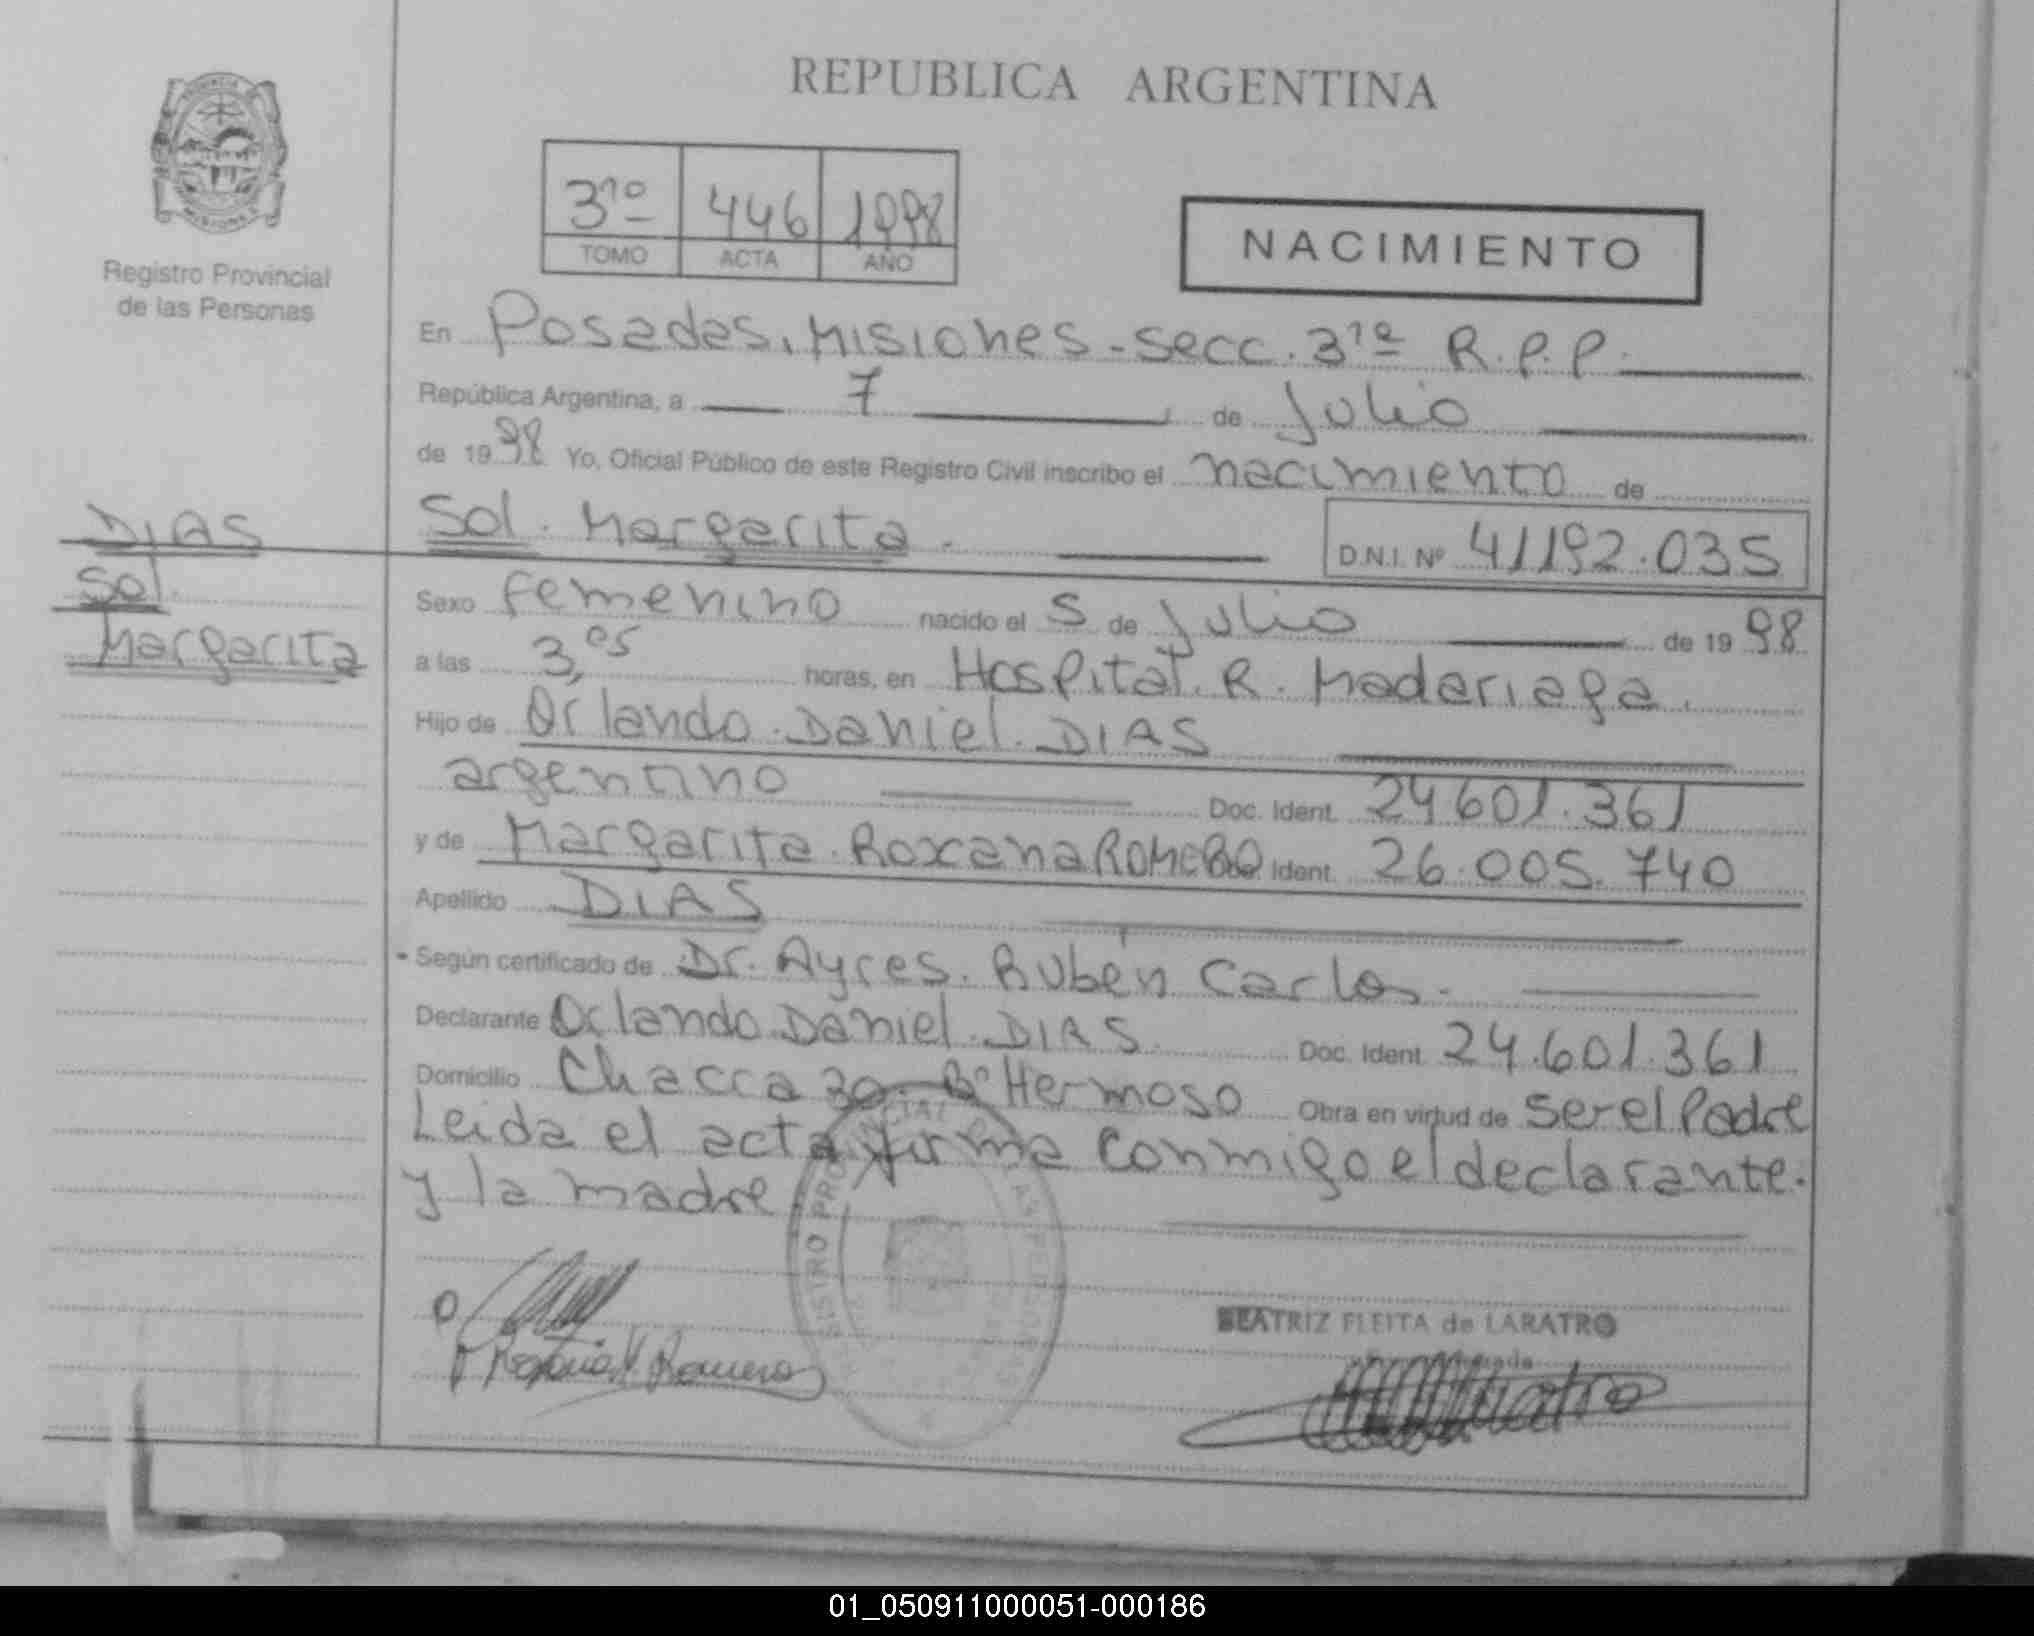 REPUBLICA ARGENTINA
Registro Provincial
de las Personas
3ro 446 1998
TOMO ACTA AÑO
NACIMIENTO
En Posadas, Misiones - Secc. 3ra R.P.P.
República Argentina, a 7 de Julio
de 1998 Yo, Oficial Público de este Registro Civil inscribo el nacimiento de
DIAS
Sol
Margarita
Sol Margarita. D.N.I. Nº 41192.035
Sexo femenino nacido el 5 de Julio de 1998
a las 3,05 horas, en Hospital R. Madariaga.
Hijo de Orlando Daniel DIAS
argentino Doc. Ident. 24601.361
y de Margarita Roxana ROMERO Ident. 26.005.740
Apellido DIAS
Según certificado de Dr. Ayres. Rubén Carlos.
Declarante Orlando Daniel DIAS Doc. Ident. 24.601.361
Domicilio Chacra 30. Bº Hermoso Obra en virtud de ser el Padre
Leida el acta firma conmigo el declarante.
y la madre
REGISTRO PROVINCIAL DE LAS PERSONAS
BEATRIZ FLEITA de LARATRO
Romero
01_050911000051-000186